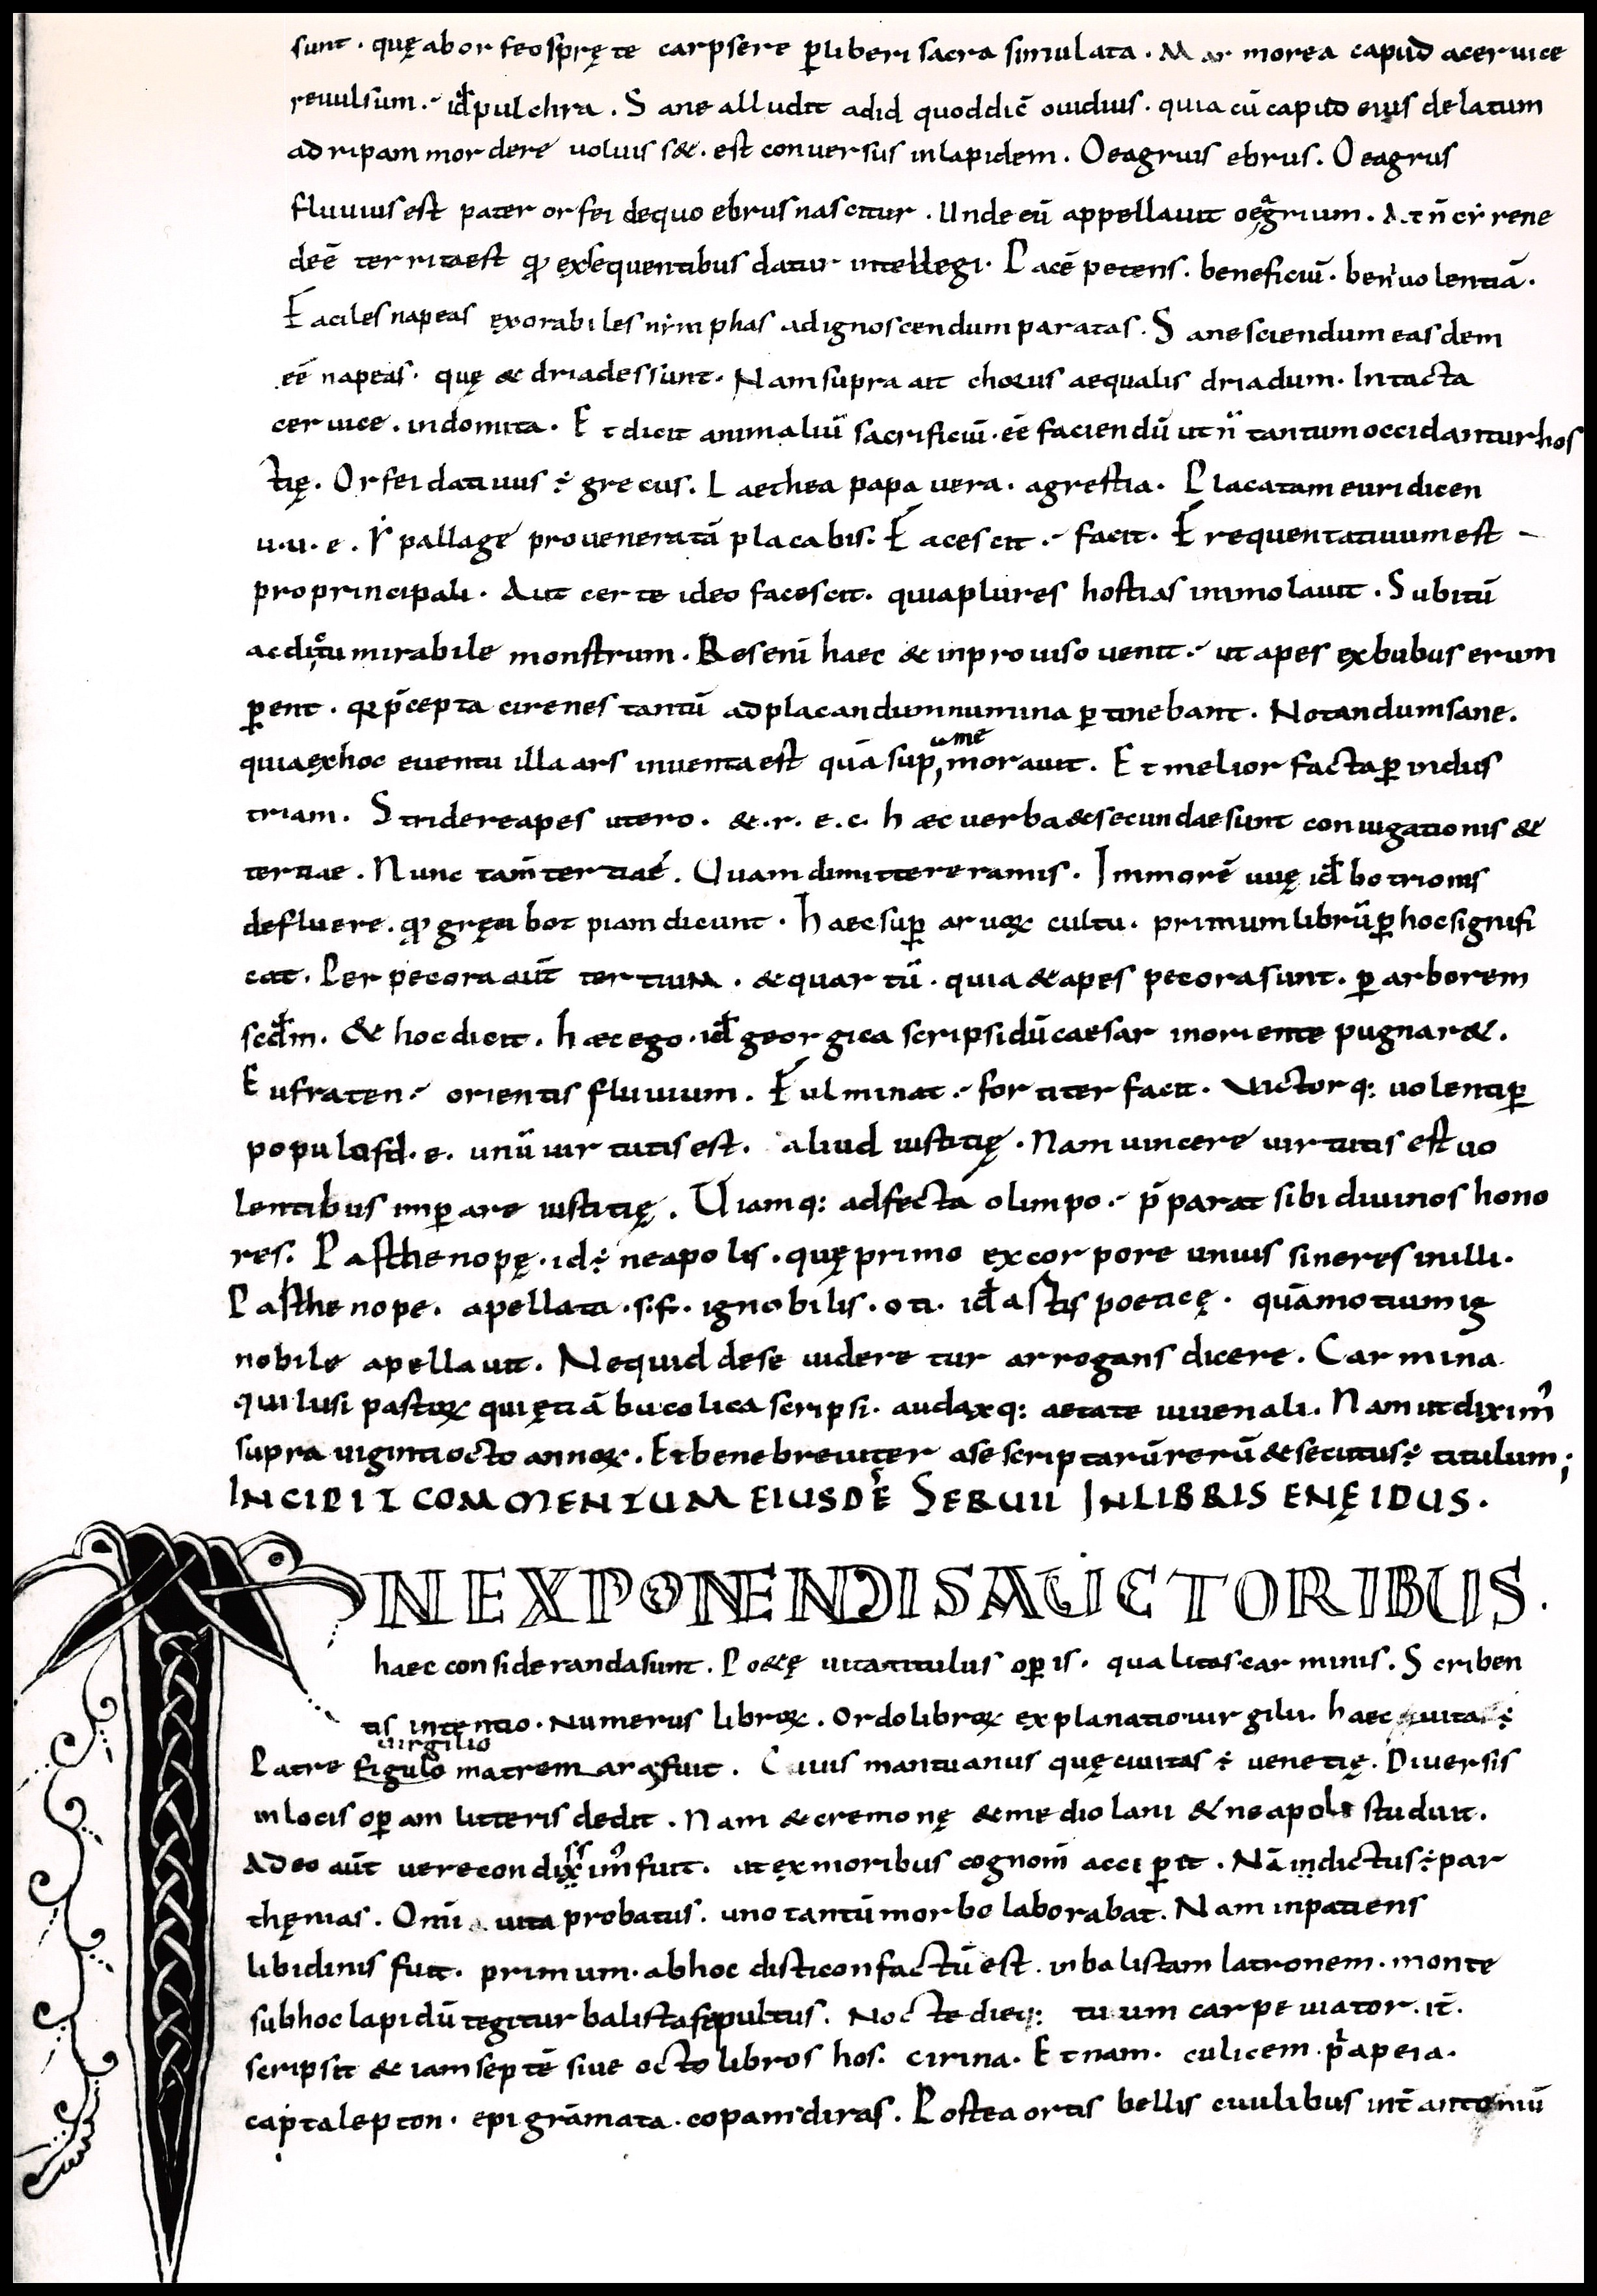 sunt · quę ab orfeo sprę te carpsere ꝑ liberi sacra simulata · Mar morea capud a cer uice
reuulsum ·⁊ id̄ pulchra . Sane alludit ad id quod dic̄ ouidius · quia cū caput eius delatum
ad ripam mordere uoluis s& . est conuersus in lapidem . Oeagrius ebrus . Oeagrus
fluuius est pater orfei de quo ebrus nascitur . Unde eū appellauit oeagrium . At n̄ cyrene
deē territa est ꝙ ex sequentibus datur intellegi · Pacē petens . beneficiū · beniuolentiā ·
Faciles napeas exorabiles nimphas ad ignoscendum paratas . Sane sciendum easdem
eē napeas · quę & driades sunt · Nam supra ait chorus aequalis driadum · Intacta
ceruice . indomita · Et dicit animaliū sacrificiū · eē faciendū ut n̄ tantum occidantur hos
tię . Orfei datiuus ÷ grecus . Laethea papauera . agrestia · Placatam euridicen
u · u · e . Ypallage pro ueneratā placabis : Facescit ·⁊ facit · Frequentatiuum est –
pro principali · Aut certe ideo facescit · quia plures hostias immolauit . Subitū
ac dictu mirabile monstrum . Res enī haec & inprouiso uenit ·⁊ ut apes ex bubus erum
ꝑent · q p̄cepta cirenes tantū ad placandum numina ꝑtinebant . Notandum sane .
quia ex hoc euentu illa ars inuenta est quā sup̱ memorauit . Et melior facta ꝑ indus
triam . Stridere apes utero . &. r. e. c. haec uerba & secundae sunt coniugationis &
tertiae . Nunc tam̄ tertiae . Quam dimittere ramis . Immorē uuę id̄ botrionis
defluere . ꝙ gręci bot piam dicunt · haec suꝑ aruoꝝ cultu . primum librū ꝑ hoc signifi
cat . Per pecora aut̄ tertium . & quartū · quia & apes pecora sunt . ꝑ arborem
scd̄m . & hoc dicit . haec ego · id̄ georgica scripsi dū caesar in oriente pugnar& .
Eufraten ·⁊ orientis fluuium . Fulminat ·⁊ fortiter facit . Uictor q: uolentiꝑ
populos d · e . unū uirtutis est . aliud iustitię · Nam uincere uirtutis est uo
lentibus imꝑare iustitię . Uiamq: adfecta olimpo ·⁊ p̄parat sibi diuinos hono
res . Pasthenopę · id ÷ neapolis . quę primo ex corpore unius sineres nulli .
Pasthenope . apellata · s · f · ignobilis · oti . id̄ astis poeticę . quāmotium ig
nobile apellauit . Nequid de se uideretur arrogans dicere . Carmina
qui lusi pastoꝝ qui ętiā bucolica scripsi . audaxq: aetate iuuenali . Nam ut diximꝰ
supra uiginti octo annoꝝ . Et bene breuiter a se scriptarū rerū & secutus ÷ titulum ;
INCIPIT COMMENTUM EIUSDĒ SERUII IN LIBRIS ENĘIDUS .
IN EXPONENDIS AUCTORIBUS .
haec consideranda sunt . Poetę uita titulus oꝑis · qualitas carminis . Scriben
tis intentio · Numerus libroꝝ . Ordo libroꝝ explanatio uirgilii . haec uita ÷
uirgilio
Patre figulo matrem fuit . Ciuis mantuanus quę ciuitas ÷ uenetię . Diuersis
in locis oꝑam litteris dedit . Nam & cremonę & mediolani & neapoli studuit .
Adeo aut̄ uerecondissimꝰ fuit . ut ex moribus cognom̄ acciꝑit . Nā indictus ÷ par
thęnias . Omī uita probatus . uno tantū morbo laborabat . Nam inpatiens
libidinis fuit . primum · ab hoc disticon factū est . in balistam latronem · monte
sub hoc lapidū tegitur balista sepultus . Nocte dieq: tuum carpe uiator . it̄ .
scripsit & iam septē siue octo libros hos . cirina . Etnam . culicem · p̄apeia .
captalepton . epigrāmata . copam diras . Postea ortis bellis ciuilibus int̄ antoniū